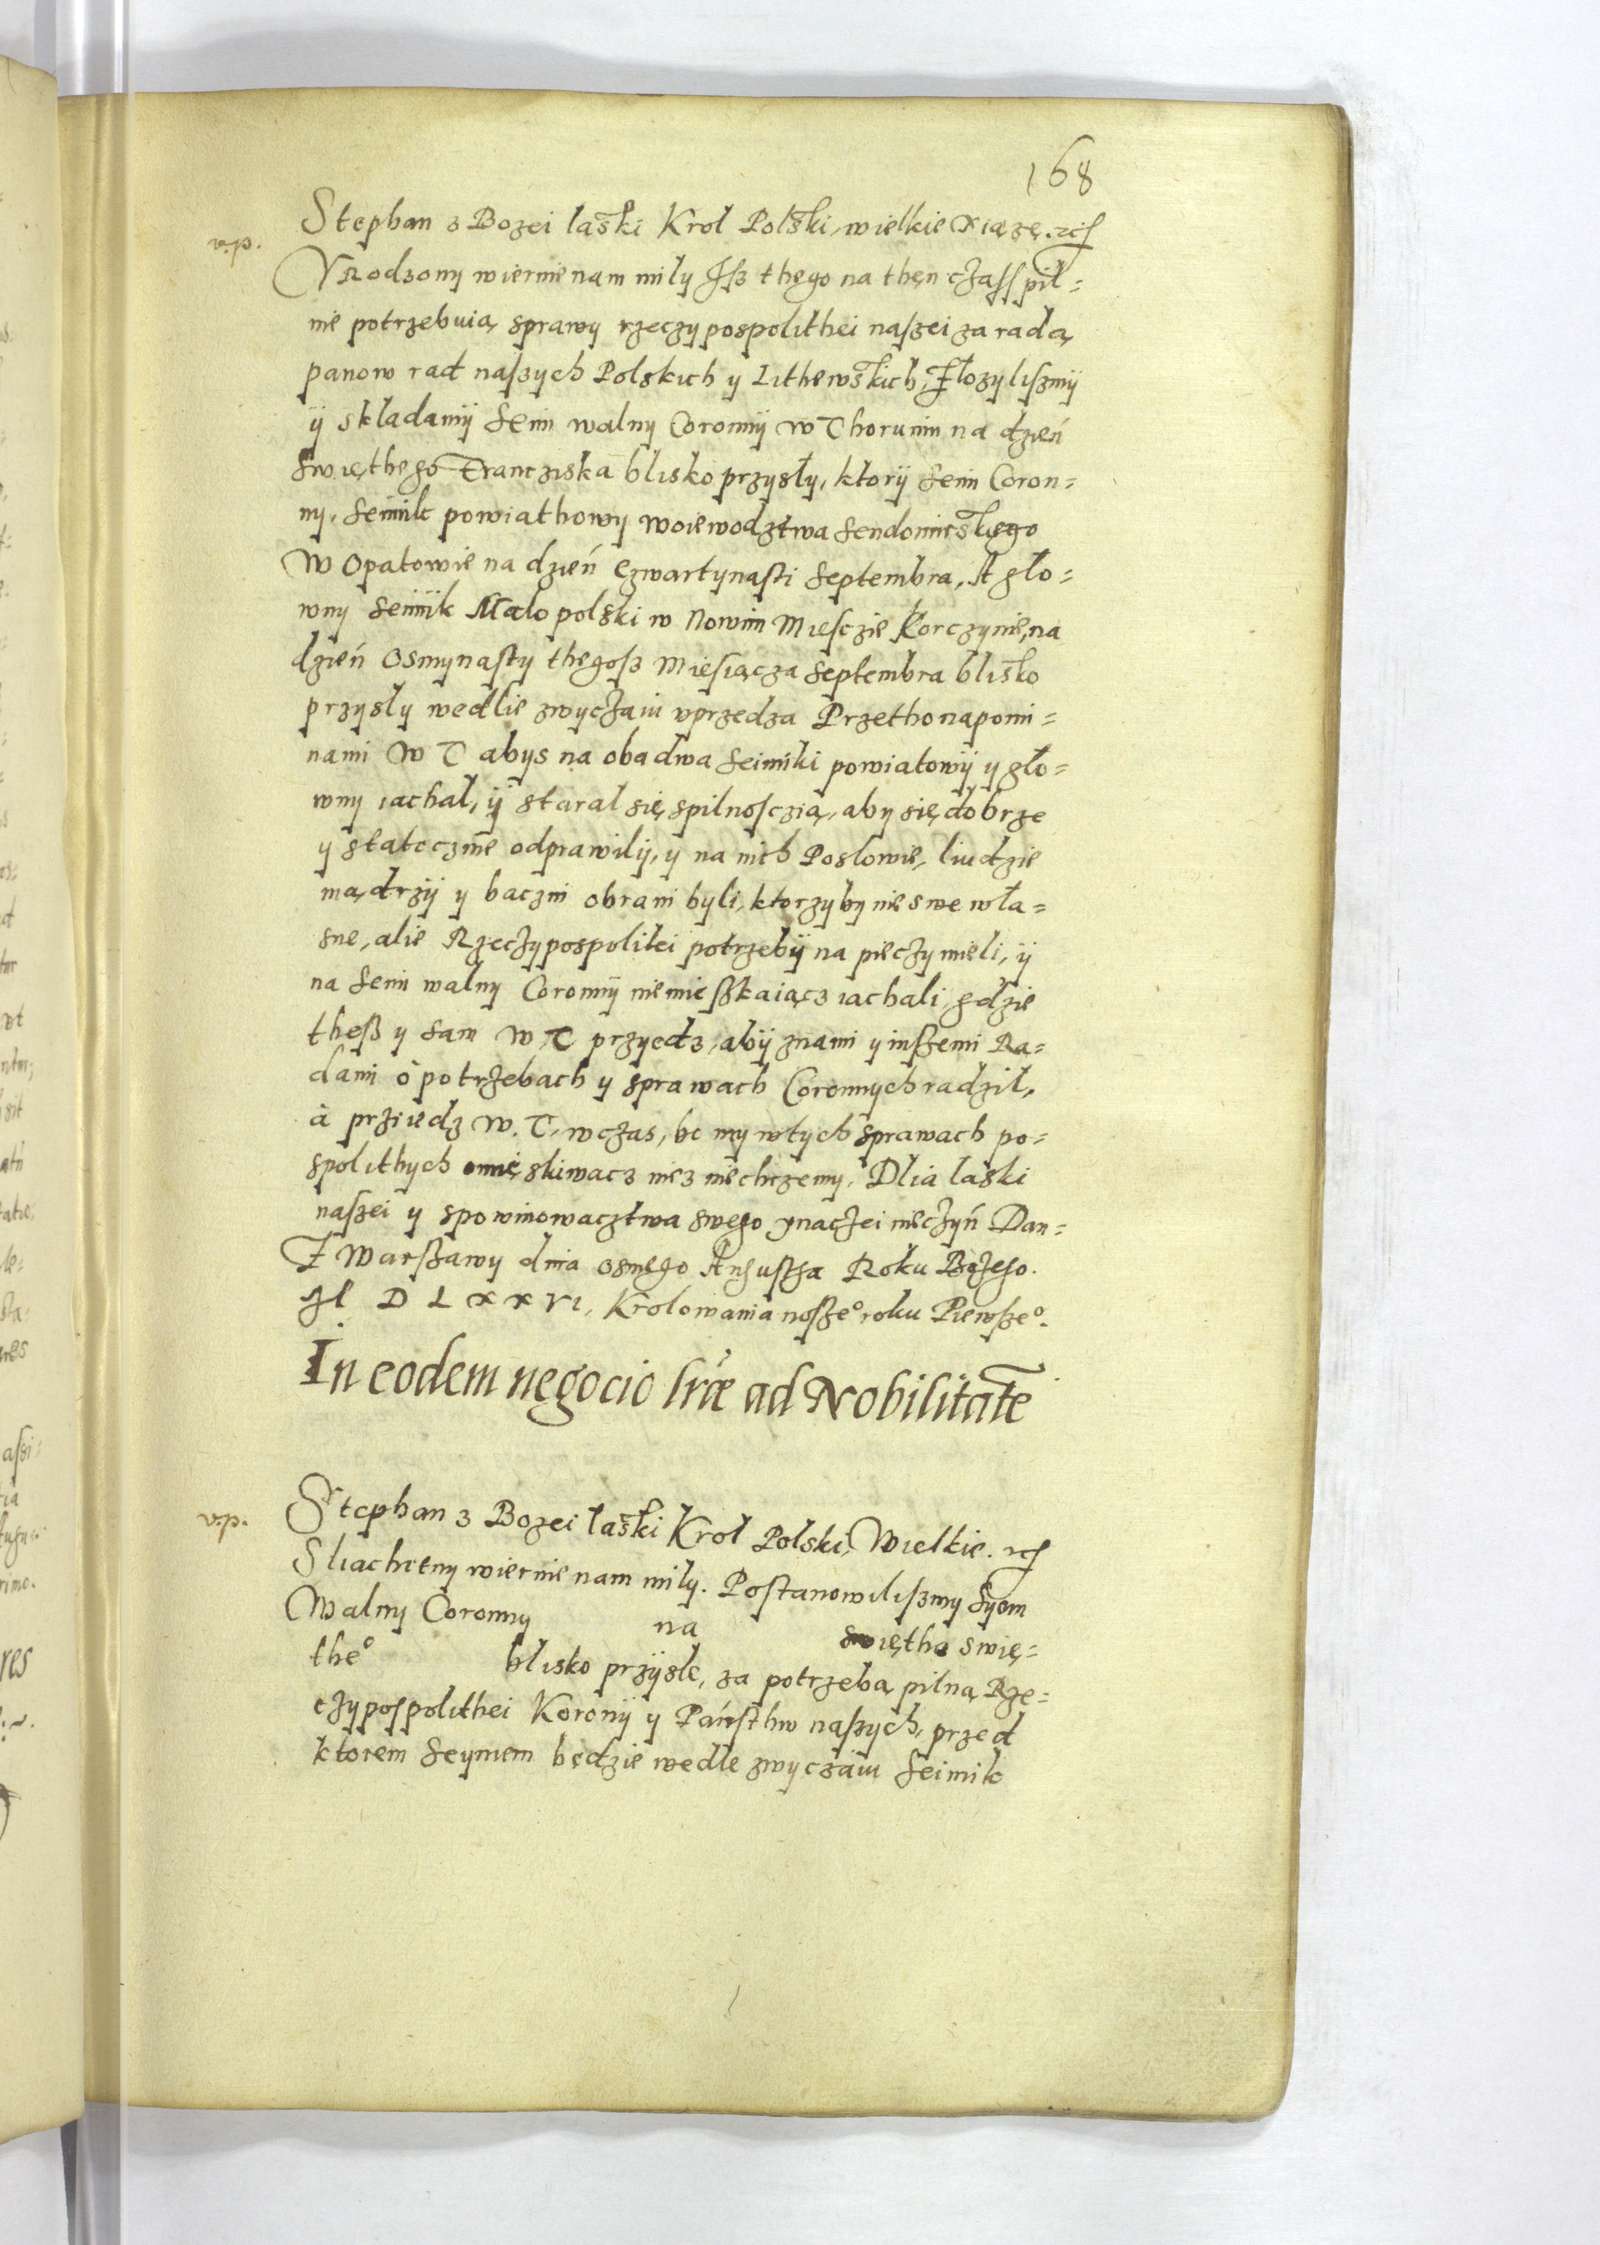 168
Stephan z Bozei laski Krol Polski, wielkie xiązę. etc
v.p.
Vrodzony wiernie nam mily Jsz thego na then czass pil=
nie potrzebuią sprawy rzeczypospolithei naszei za radą
panow rad naszych Polskich y Lithewskich, złozyliszmÿ
ÿ składamÿ Seim walny Coronnÿ w Thoruniu na dzień
Swięthego Franciska blisko przysły, ktorÿ Seim Coron=
ny, Seimik powiathowy woiewodztwa Sendomirskiego
W Opatowie na dzień czwartynasti Septembra, A gło=
wny Seimik Malo polski w Nowim Miesczie Korczynie, na
dzień Osmynasty thegosz Miesiącza Septembra blisko
przysly wedlie zwyczaiu vprzedza Przetho napomi=
nami W T abys na obadwa Seimiki powiatowÿ y gło=
wny iachal, ÿ staral się spilnosczią, aby się dobrze
y statecznie odprawilÿ, y na nich Poslowie, liudzie
mądrzÿ y baczni obrani byli, ktorzyby nie swe wła=
sne, alie Rzeczypospolitei potrzebÿ na pieczy mieli, ÿ
na Seim walny Coronnÿ niemieszkaiącz iachali, gdzie
thesz y sam W T przyedz, abÿ znami y inszemi Ra=
dami ò potrzebach y sprawach Coronnych radzil,
à prziiedz W. T. wczas, bo my wtych sprawach po=
spolithych omięskiwacz niez niechczemy, Dlia laski
naszei y spowinowacztwa swego ynaczei nieczyń Dan=
Z Warszawy dnia osmego Augusta Roku Bożego.
M D L X X VI, Krolowania naszeo roku Pierwszeo.
In eodem negocio lræ ad Nobilitate
v.p.
Stephan z Bozei laski Krol Polski, Wielkie. etc
Sliachetny wiernie nam mily. Postanowiliszmy Syem
Walny Coronny na swiętho swię=
theo blisko przÿsle, za potrzebą pilną Rze=
czypospolithei Koronÿ y Państhw naszych, przed
ktorem Seymem będzie wedle zwyczaiu Seimik